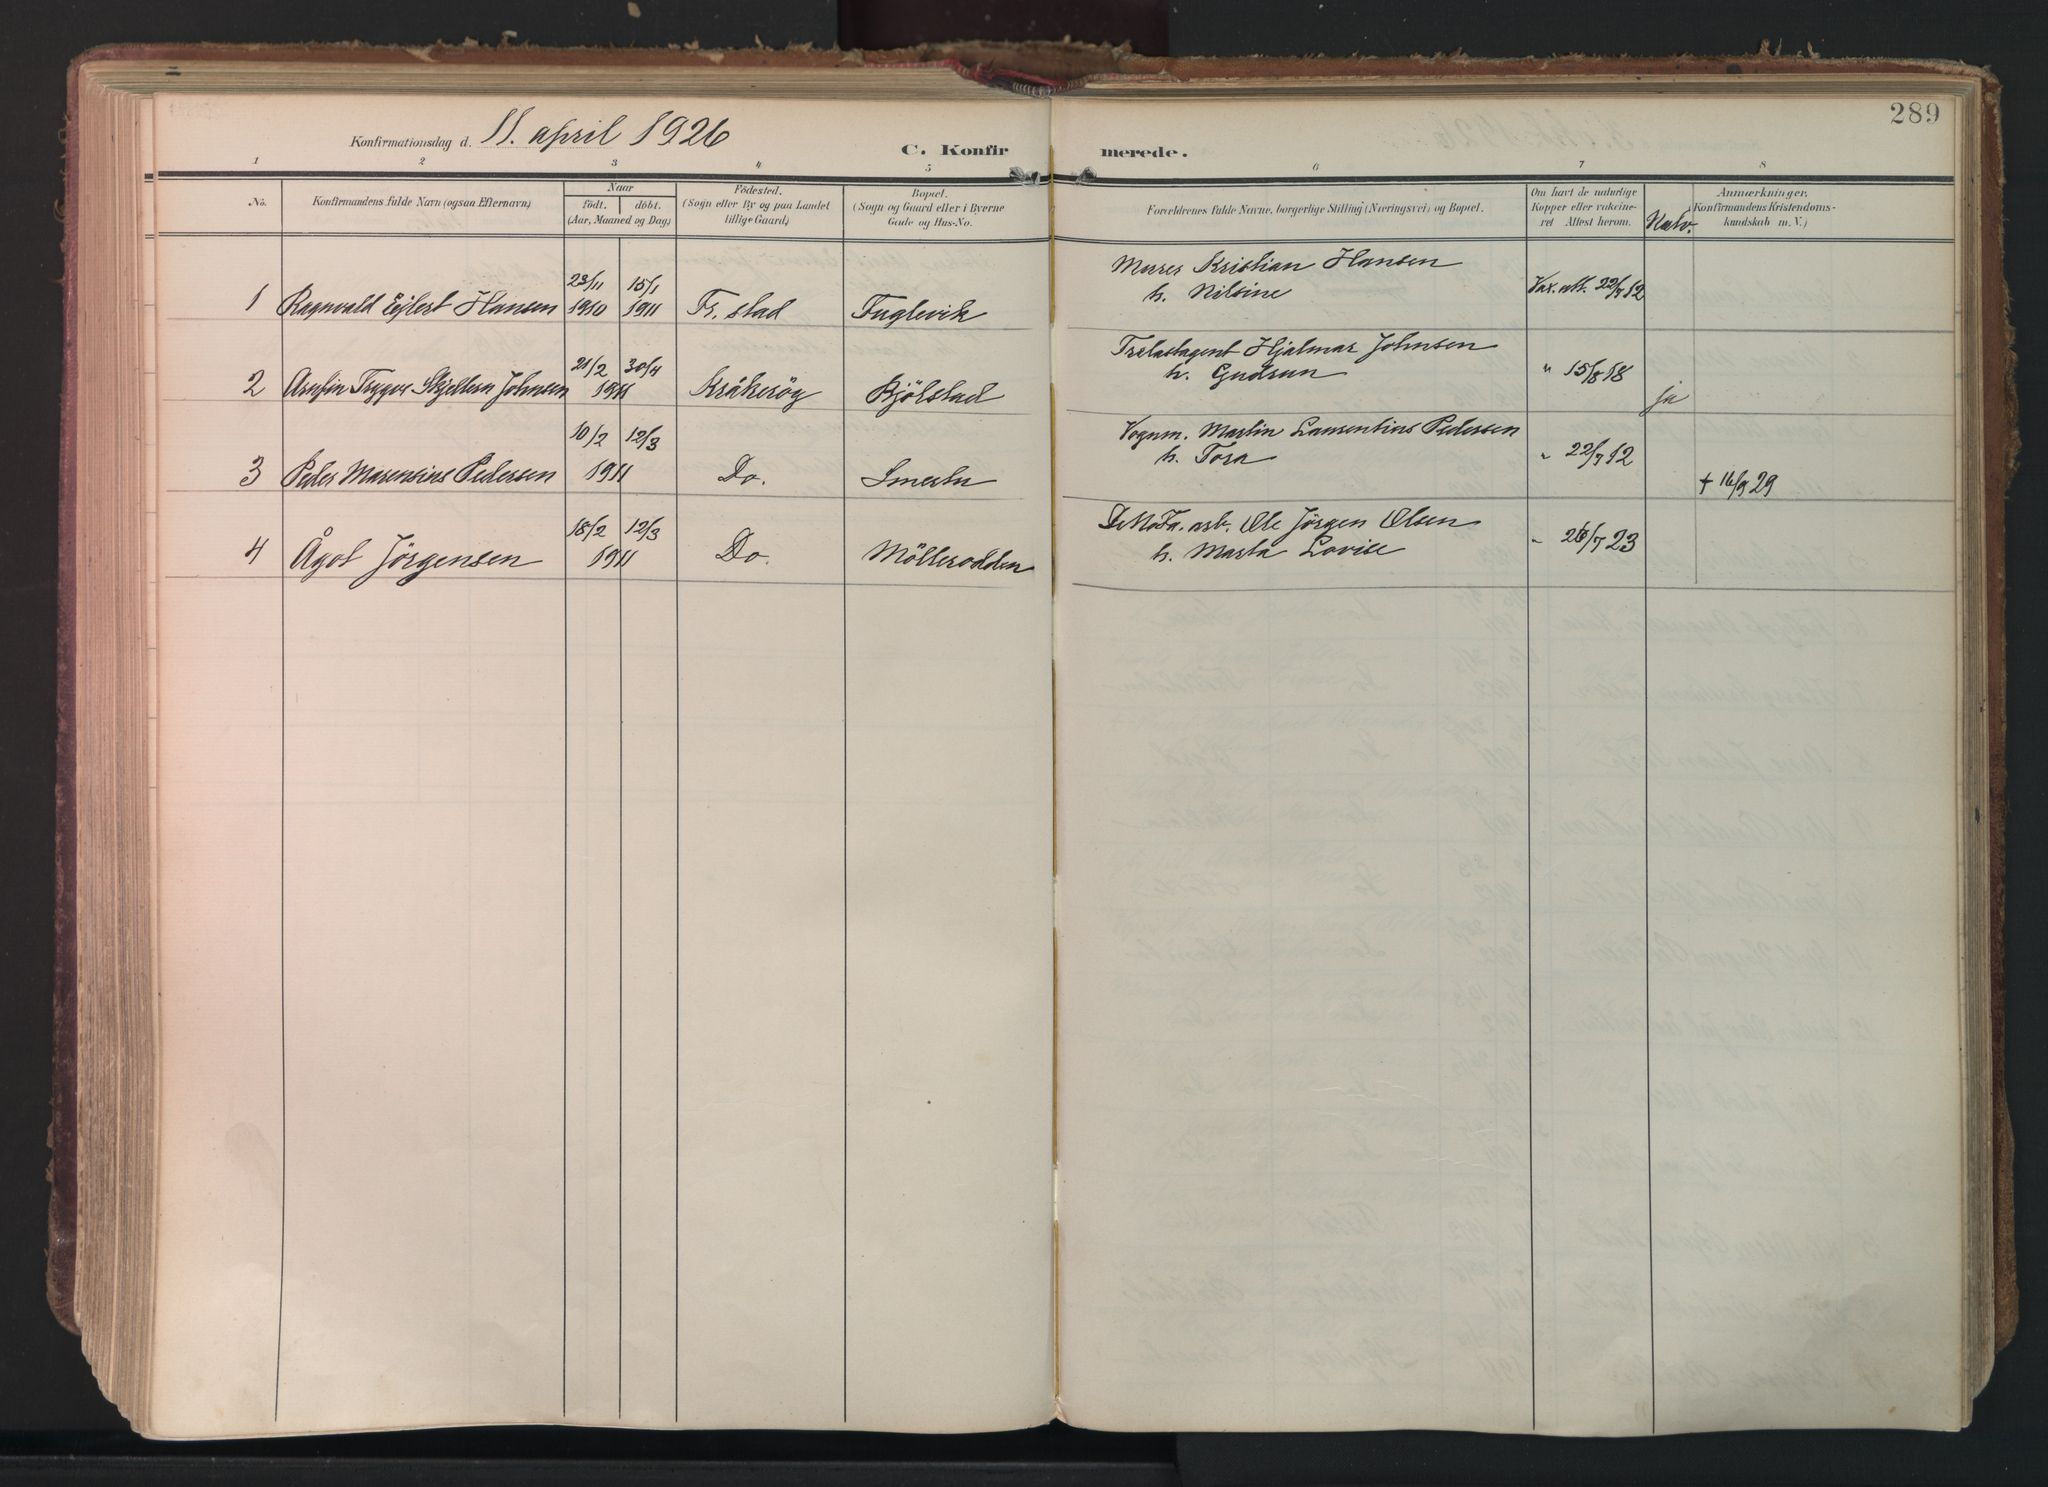 289
Konfirmationsdag d. 11. april 1926
C. Konfirmerede.
1 2 3 4 5 6 7 8
No.
Konfirmandens fulde Navn (ogsaa Efternavn)
Naar
født. døbt.
(Aar, Maaned og Dag)
Födested.
(Sogn eller By og paa Landet
tillige Gaard)
Bopæl.
(Sogn og Gaard eller i Byerne
Gade og Hus-No.
Forældrenes fulde Navne, borgerlige Stilling (Næringsvei) og Bopæl.
Om havt de naturlige
Kopper eller vakcine-
ret Attest herom.
Anmærkninger.
Konfirmandens Kristendoms-
kundskab m. V.)
1 Ragnvald Ejlert Hansen 23/11 1910 15/1 1911 Fr. stad Fuglevik
Murer Kristian Hansen
h. Nilsine
Vax. att. 22/7 12
2 Arnfin Trygve Skjelbern Johnsen 21/2 30/4 1911 Kråkerøy Kjølstad
Trelastagent Hjalmar Johnsen
h. Gudrun
" 15/8 18
ja
3 Peder Marensius Pedersen 10/2 12/3 1911 Do. Smertu
Vognm. Martin Laurentius Pedersen
h. Tora
" 22/7 12
+ 16/9 29
4 Ågot Jörgensen 18/2 12/3 1911 Do. Möllerodden
arb. Ole Jörgen Olsen
h. Marta Lovise
" 26/7 23